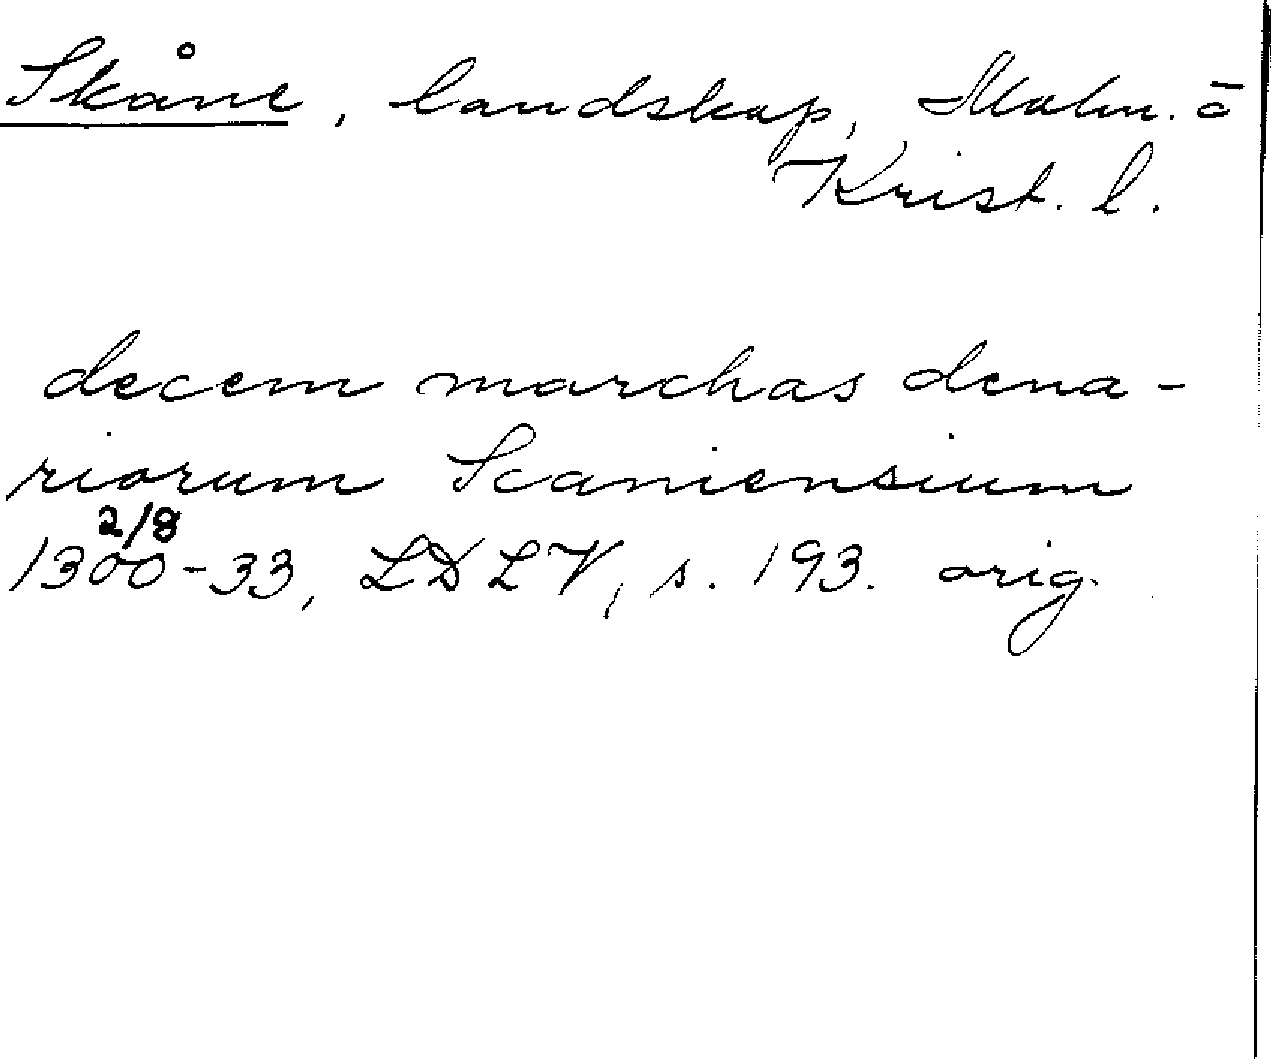 Skåne, landskap, Malm. ō
Krist. l.
decem marchas dena-
riorum Scaniensium
2/8
1300-33, LDLV, s. 193. orig.